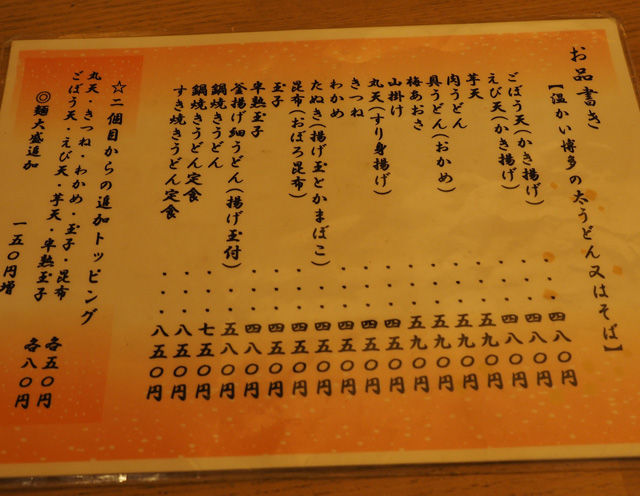 お品書き
【温かい博多の太うどん又はそば】
ごぼう天(かき揚げ)・・・四八〇円
えび天(かき揚げ)・・・四八〇円
芋天・・・四八〇円
肉うどん・・・五九〇円
具うどん(おかめ)・・・五九〇円
梅あおさ・・・五九〇円
山掛け・・・五九〇円
丸天(すり身揚げ)・・・四五〇円
きつね・・・四五〇円
わかめ・・・四五〇円
たぬき(揚げ玉とかまぼこ)・・・四五〇円
昆布(おぼろ昆布)・・・四五〇円
玉子・・・四五〇円
半熟玉子・・・四八〇円
釜揚げ細うどん(揚げ玉付)・・・五八〇円
鍋焼きうどん・・・七五〇円
鍋焼きうどん定食・・・八五〇円
すき焼きうどん定食・・・八五〇円
☆二個目からの追加トッピング
丸天・きつね・わかめ・玉子・昆布 各五〇円
ごぼう天・えび天・芋天・半熟玉子 各八〇円
◎麺大盛追加 一五〇円増